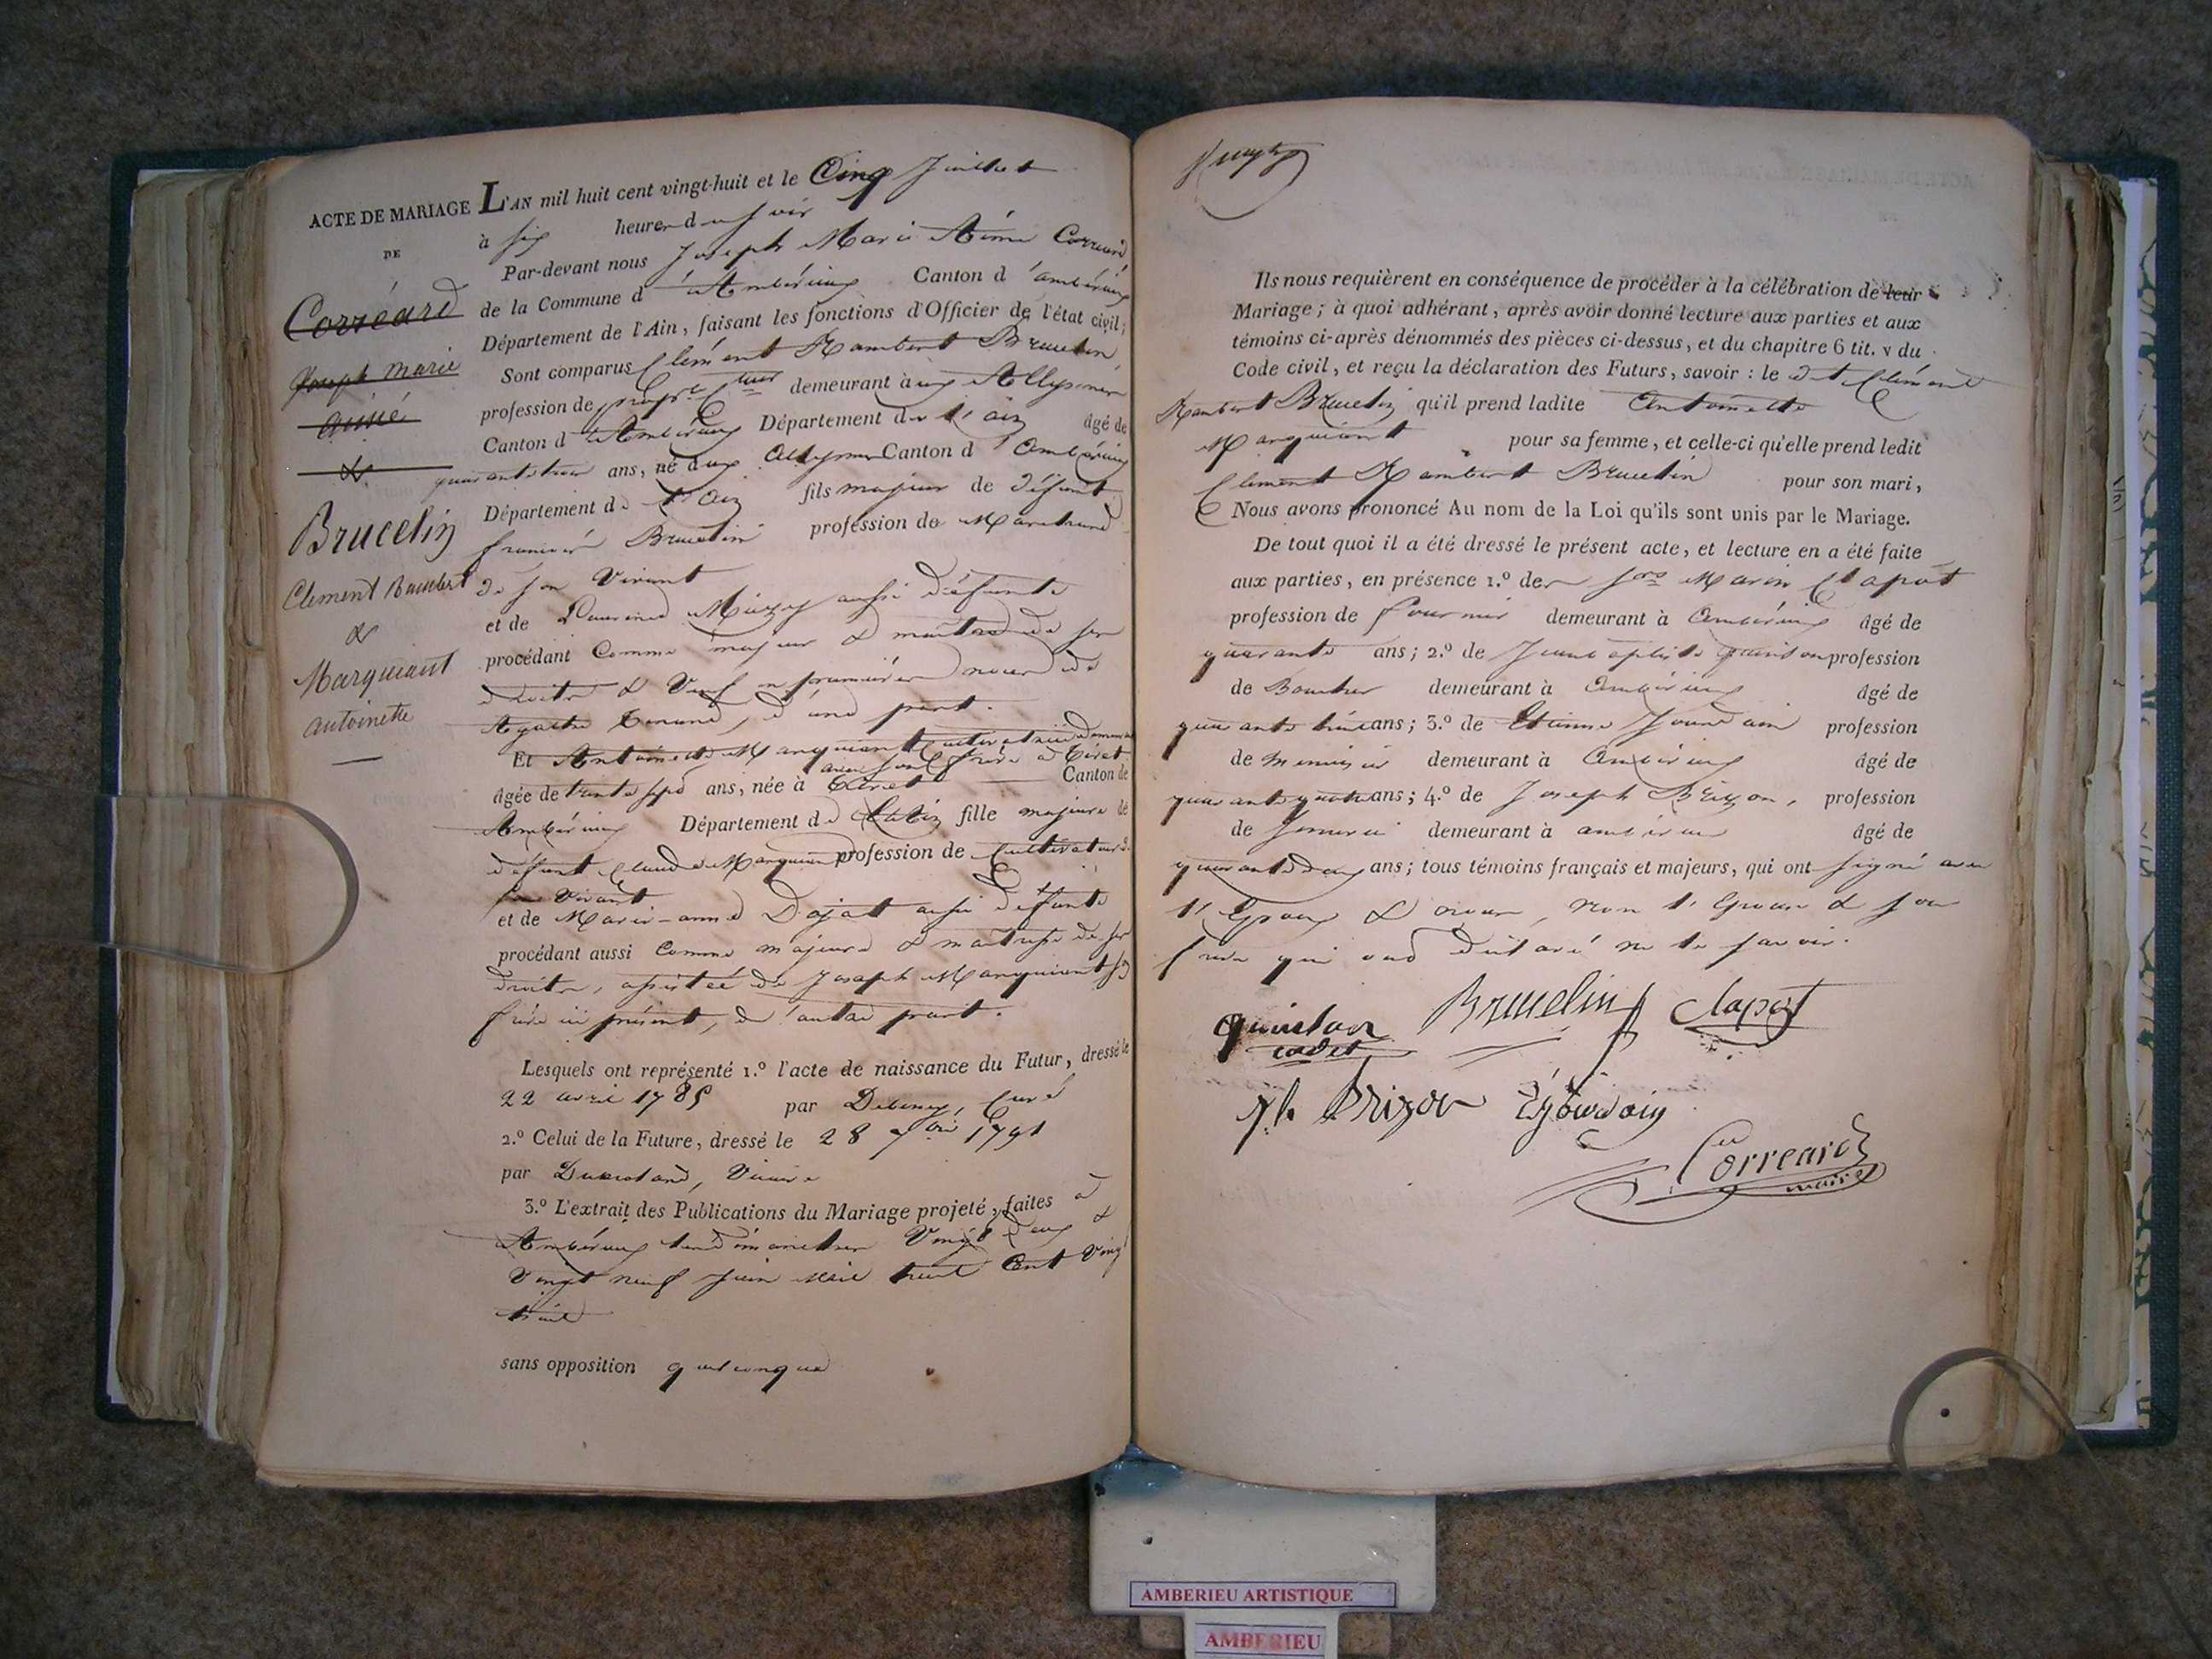 ACTE DE MARIAGE
DE
Corréard
Joseph Marie
aimé
&
Brucelin
Clement Rambert
&
Marquiant
antoinette
L'AN mil huit cent vingt-huit et le Cinq Juillet
à six heures du soir
Par-devant nous Joseph Marie Aimé Corréard
de la Commune d'Ambérieux Canton d'ambérieux
Département de l'Ain, faisant les fonctions d'Officier de l'état civil;
Sont comparus Clément Rambert Brucelin
profession de demeurant aux Allymes
Canton d'Ambérieux Département de l'ain âgé de
quarante trois ans, né aux Allymes Canton d'Ambérieux
Département de l'Ain fils majeur de défunt
françois Brucelin profession de Marchand
de son Vivant
et de aussi défunte
procédant Comme majeur & maitre de ses
droits & Veuf en premières noces de
Agathe d'une part.
Et Antoinette Marquiant Cultivatrice demeurant
avec son frère à Tiret
âgée de trente sept ans, née à Tiret Canton de
Ambérieux Département de l'ain fille majeure de
défunt Claude Marquiant profession de Cultivateur de
son Vivant
et de Marie-anne Dojat aussi défunte
procédant aussi Comme majeure & maitresse de ses
droits, assistée de Joseph Marquiant son
frère ici présent, d'autre part.
Lesquels ont représenté 1.º l'acte de naissance du Futur, dressé le
22 avril 1785 par Debeney, Curé
2.º Celui de la Future, dressé le 28 7bre 1791
par Vicaire
3.º L'extrait des Publications du Mariage projeté, faites à
Ambérieux les dimanches Vingt-deux &
Vingt neuf Juin mil huit Cent Vingt
huit
sans opposition quelconque
Ils nous requièrent en conséquence de procéder à la célébration de leur
Mariage; à quoi adhérant, après avoir donné lecture aux parties et aux
témoins ci-après dénommés des pièces ci-dessus, et du chapitre 6 tit. v du
Code civil, et reçu la déclaration des Futurs, savoir : le dit Clément
Rambert Brucelin qu'il prend ladite Antoinette
Marquiant pour sa femme, et celle-ci qu'elle prend ledit
Clement Rambert Brucelin pour son mari,
Nous avons prononcé Au nom de la Loi qu'ils sont unis par le Mariage.
De tout quoi il a été dressé le présent acte, et lecture en a été faite
aux parties, en présence 1.º des srs Marin Clapot
profession de fournier demeurant à Ambérieux âgé de
quarante ans; 2.º de Jean baptiste quinson profession
de Boucher demeurant à Ambérieux âgé de
quarante huit ans; 3.º de Etienne Jourdain profession
de menuisier demeurant à Ambérieux âgé de
quarante quatre ans; 4.º de Joseph Brizon, profession
de demeurant à ambérieux âgé de
quarante deux ans; tous témoins français et majeurs, qui ont signé avec
l'Epoux & nous, non l'Epouse & son
frère qui ont déclaré ne le savoir.
quinson
cadet
Brucelin
clapot
Brizon
E Jourdain
Corréard
maire
AMBERIEU ARTISTIQUE
AMBERIEU